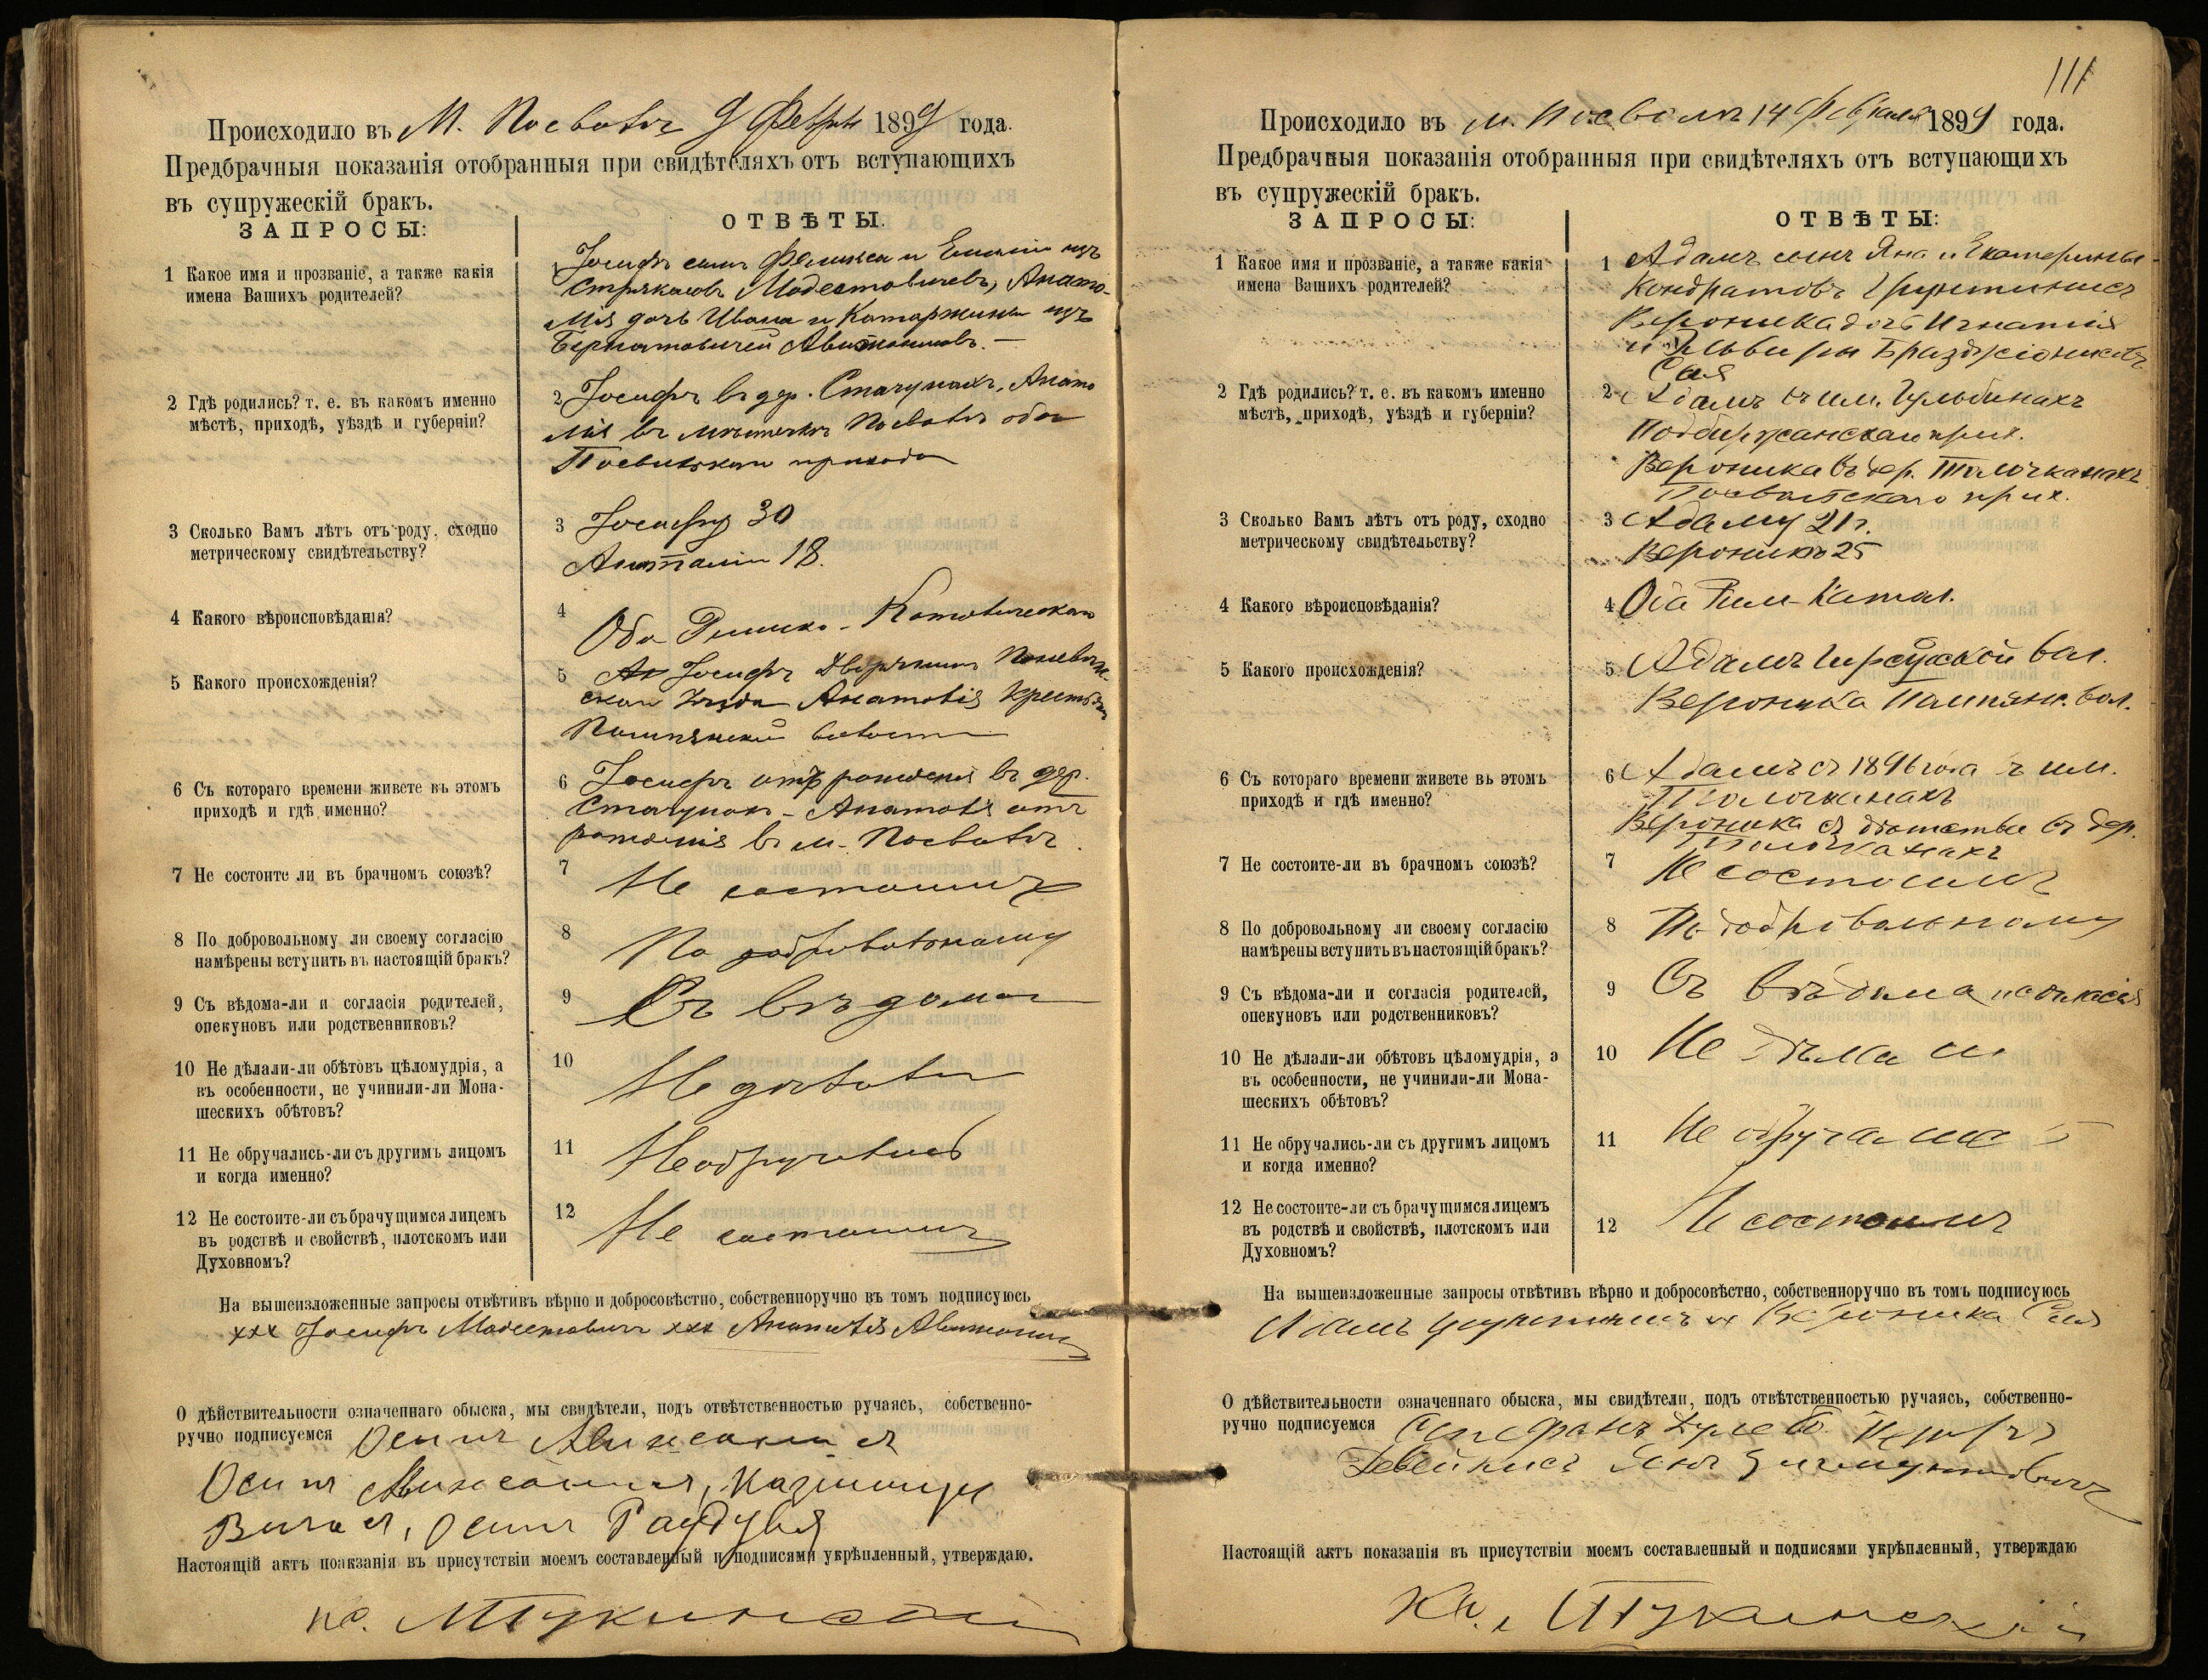 Происходило въ М. Посволь 9 Февр 1899 года.
Предбрачныя показанія отобранныя при свидѣтеляхъ отъ вступающихъ
въ супружескій бракъ.
ЗАПРОСЫ:
ОТВѢТЫ:
1 Какое имя и прозваніе, а также какія
имена Вашихъ родителей?
Іосифъ сынъ Феликса и Емиліи изъ
Модестовичевъ, Анато-
лія дочь Ивана и Катаржины изъ
2 Гдѣ родились? т. е. въ какомъ именно
мѣстѣ, приходѣ, уѣздѣ и губерніи?
2 Іосифъ въ дер. Анато
лія въ мѣстечкѣ Посволь оба
Посвольскаго прихода
3 Сколько Вамъ лѣтъ отъ роду, сходно
метрическому свидѣтельству?
3 Іосифу 30
Анатоліи 18.
4 Какого вѣроисповѣданія?
4 Оба Римско-Католическаго
5 Какого происхожденія?
5 Іосифъ Дворянинъ Поневѣж-
скаго уѣзда Анатолія крестьян
волости
6 Съ котораго времени живете въ этомъ
приходѣ и гдѣ именно?
6 Іосифъ отъ рожденія въ дер.
Анатолія отъ
рожденія въ м. Посволь.
7 Не состоите ли въ брачномъ союзѣ?
7 Не состоимъ
8 По добровольному ли своему согласію
намѣрены вступить въ настоящій бракъ?
8 По добровольному
9 Съ вѣдома-ли и согласія родителей,
опекуновъ или родственниковъ?
9 Съ вѣдома
10 Не дѣлали-ли обѣтовъ цѣломудрія, а
въ особенности, не учинили-ли Мона-
шескихъ обѣтовъ?
10 Не дѣлали
11 Не обручались-ли съ другимъ лицомъ
и когда именно?
11 Не обручались
12 Не состоите-ли съ брачущимся лицемъ
въ родствѣ и свойствѣ, плотскомъ или
Духовномъ?
12 Не состоимъ
На вышеизложенные запросы отвѣтивъ вѣрно и добросовѣстно, собственноручно въ томъ подписуюсь
xxx Іосифъ Модестовичъ xxx Анатолія
О дѣйствительности означеннаго обыска, мы свидѣтели, подъ отвѣтственностью ручаясь, собственно-
ручно подписуемся Осипъ
Осипъ
Осипъ
Настоящій актъ поакзанія въ присутствіи моемъ составленный и подписями укрѣпленный, утверждаю.
111
Происходило въ м. Посволь 14 Февраля 1899 года.
Предбрачныя показанія отобранныя при свидѣтеляхъ отъ вступающихъ
въ супружескій бракъ.
ЗАПРОСЫ:
ОТВѢТЫ:
1 Какое имя и прозваніе, а также какія
имена Вашихъ родителей?
1 Адамъ сынъ Яна и Екатерины
Кондратовъ
Вероника дочь Игнатія
и
2 Гдѣ родились? т. е. въ какомъ именно
мѣстѣ, приходѣ, уѣздѣ и губерніи?
2 Адамъ въ им.
прих.
Вероника въ дер. Толочканахъ
Посвольскаго прих.
3 Сколько Вамъ лѣтъ отъ роду, сходно
метрическому свидѣтельству?
3 Адаму 21 г.
Вероникѣ 25
4 Какого вѣроисповѣданія?
4 Оба Рим-Катол.
5 Какого происхожденія?
5 Адамъ вол.
Вероника Помпянс. вол.
6 Съ котораго времени живете въ этомъ
приходѣ и гдѣ именно?
6 Адамъ съ 1896 года въ им.
Толочканахъ
Вероника съ дѣтства въ дер.
Толочканахъ
7 Не состоите-ли въ брачномъ союзѣ?
7 Не состоимъ
8 По добровольному ли своему согласію
намѣрены вступить въ настоящій бракъ?
8 По добровольному
9 Съ вѣдома-ли и согласія родителей,
опекуновъ или родственниковъ?
9 Съ вѣдома
10 Не дѣлали-ли обѣтовъ цѣломудрія, а
въ особенности, не учинили-ли Мона-
шескихъ обѣтовъ?
10 Не дѣлали
11 Не обручались-ли съ другимъ лицомъ
и когда именно?
11 Не обручались
12 Не состоите-ли съ брачущимся лицемъ
въ родствѣ и свойствѣ, плотскомъ или
Духовномъ?
12 Не состоимъ
На вышеизложенные запросы отвѣтивъ вѣрно и добросовѣстно, собственноручно въ томъ подписуюсь
Адамъ Вероника
О дѣйствительности означеннаго обыска, мы свидѣтели, подъ отвѣтственностью ручаясь, собственно-
ручно подписуемся
Янъ
Настоящій актъ показанія въ присутствіи моемъ составленный и подписями укрѣпленный, утверждаю